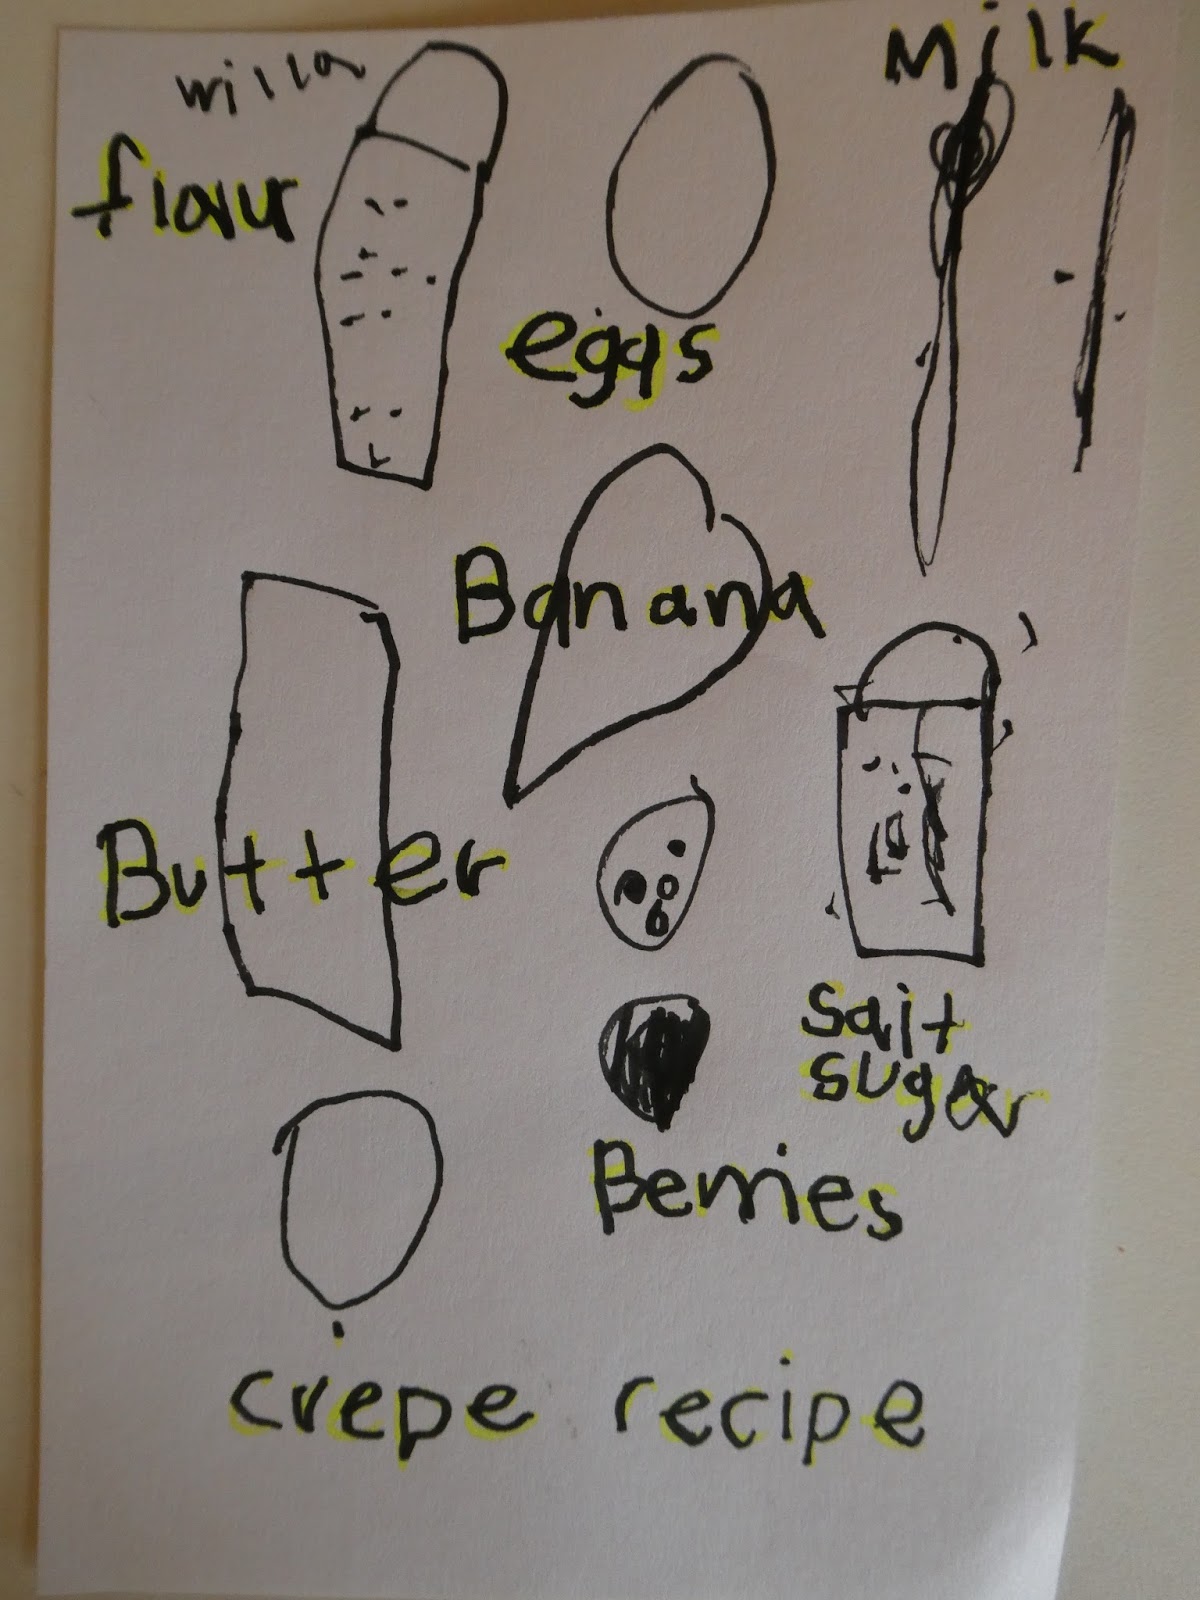 willa
Milk
flour
eggs
Banana
Butter
Salt
suger
Berries
crepe recipe